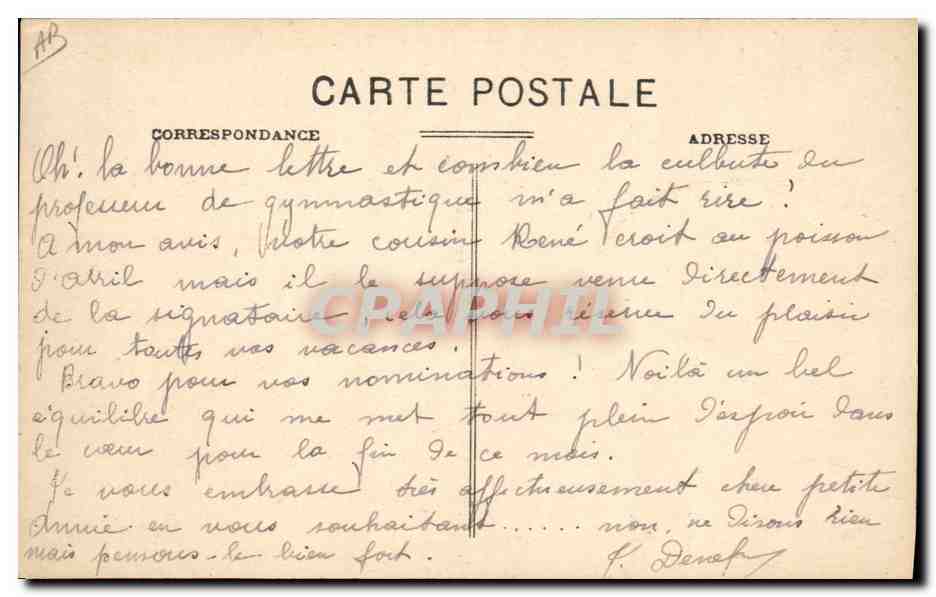 AB
CARTE POSTALE
CORRESPONDANCE
ADRESSE
Oh! la bonne lettre et combien la culbute du
professeur de gymnastique m'a fait rire!
A mon avis, votre cousin René croit au poisson
d'avril mais il le suppose venu directement
de la signataire, cela vous réserve du plaisir
pour toutes vos vacances.
Bravo pour vos nominations! Voilà un bel
équilibre qui me met tout plein d'espoir dans
le cœur pour la fin de ce mois.
Je vous embrasse très affectueusement chère petite
Annie en vous souhaitant...... non, ne disons rien
mais pensons-le bien fort.
CPAPHIL